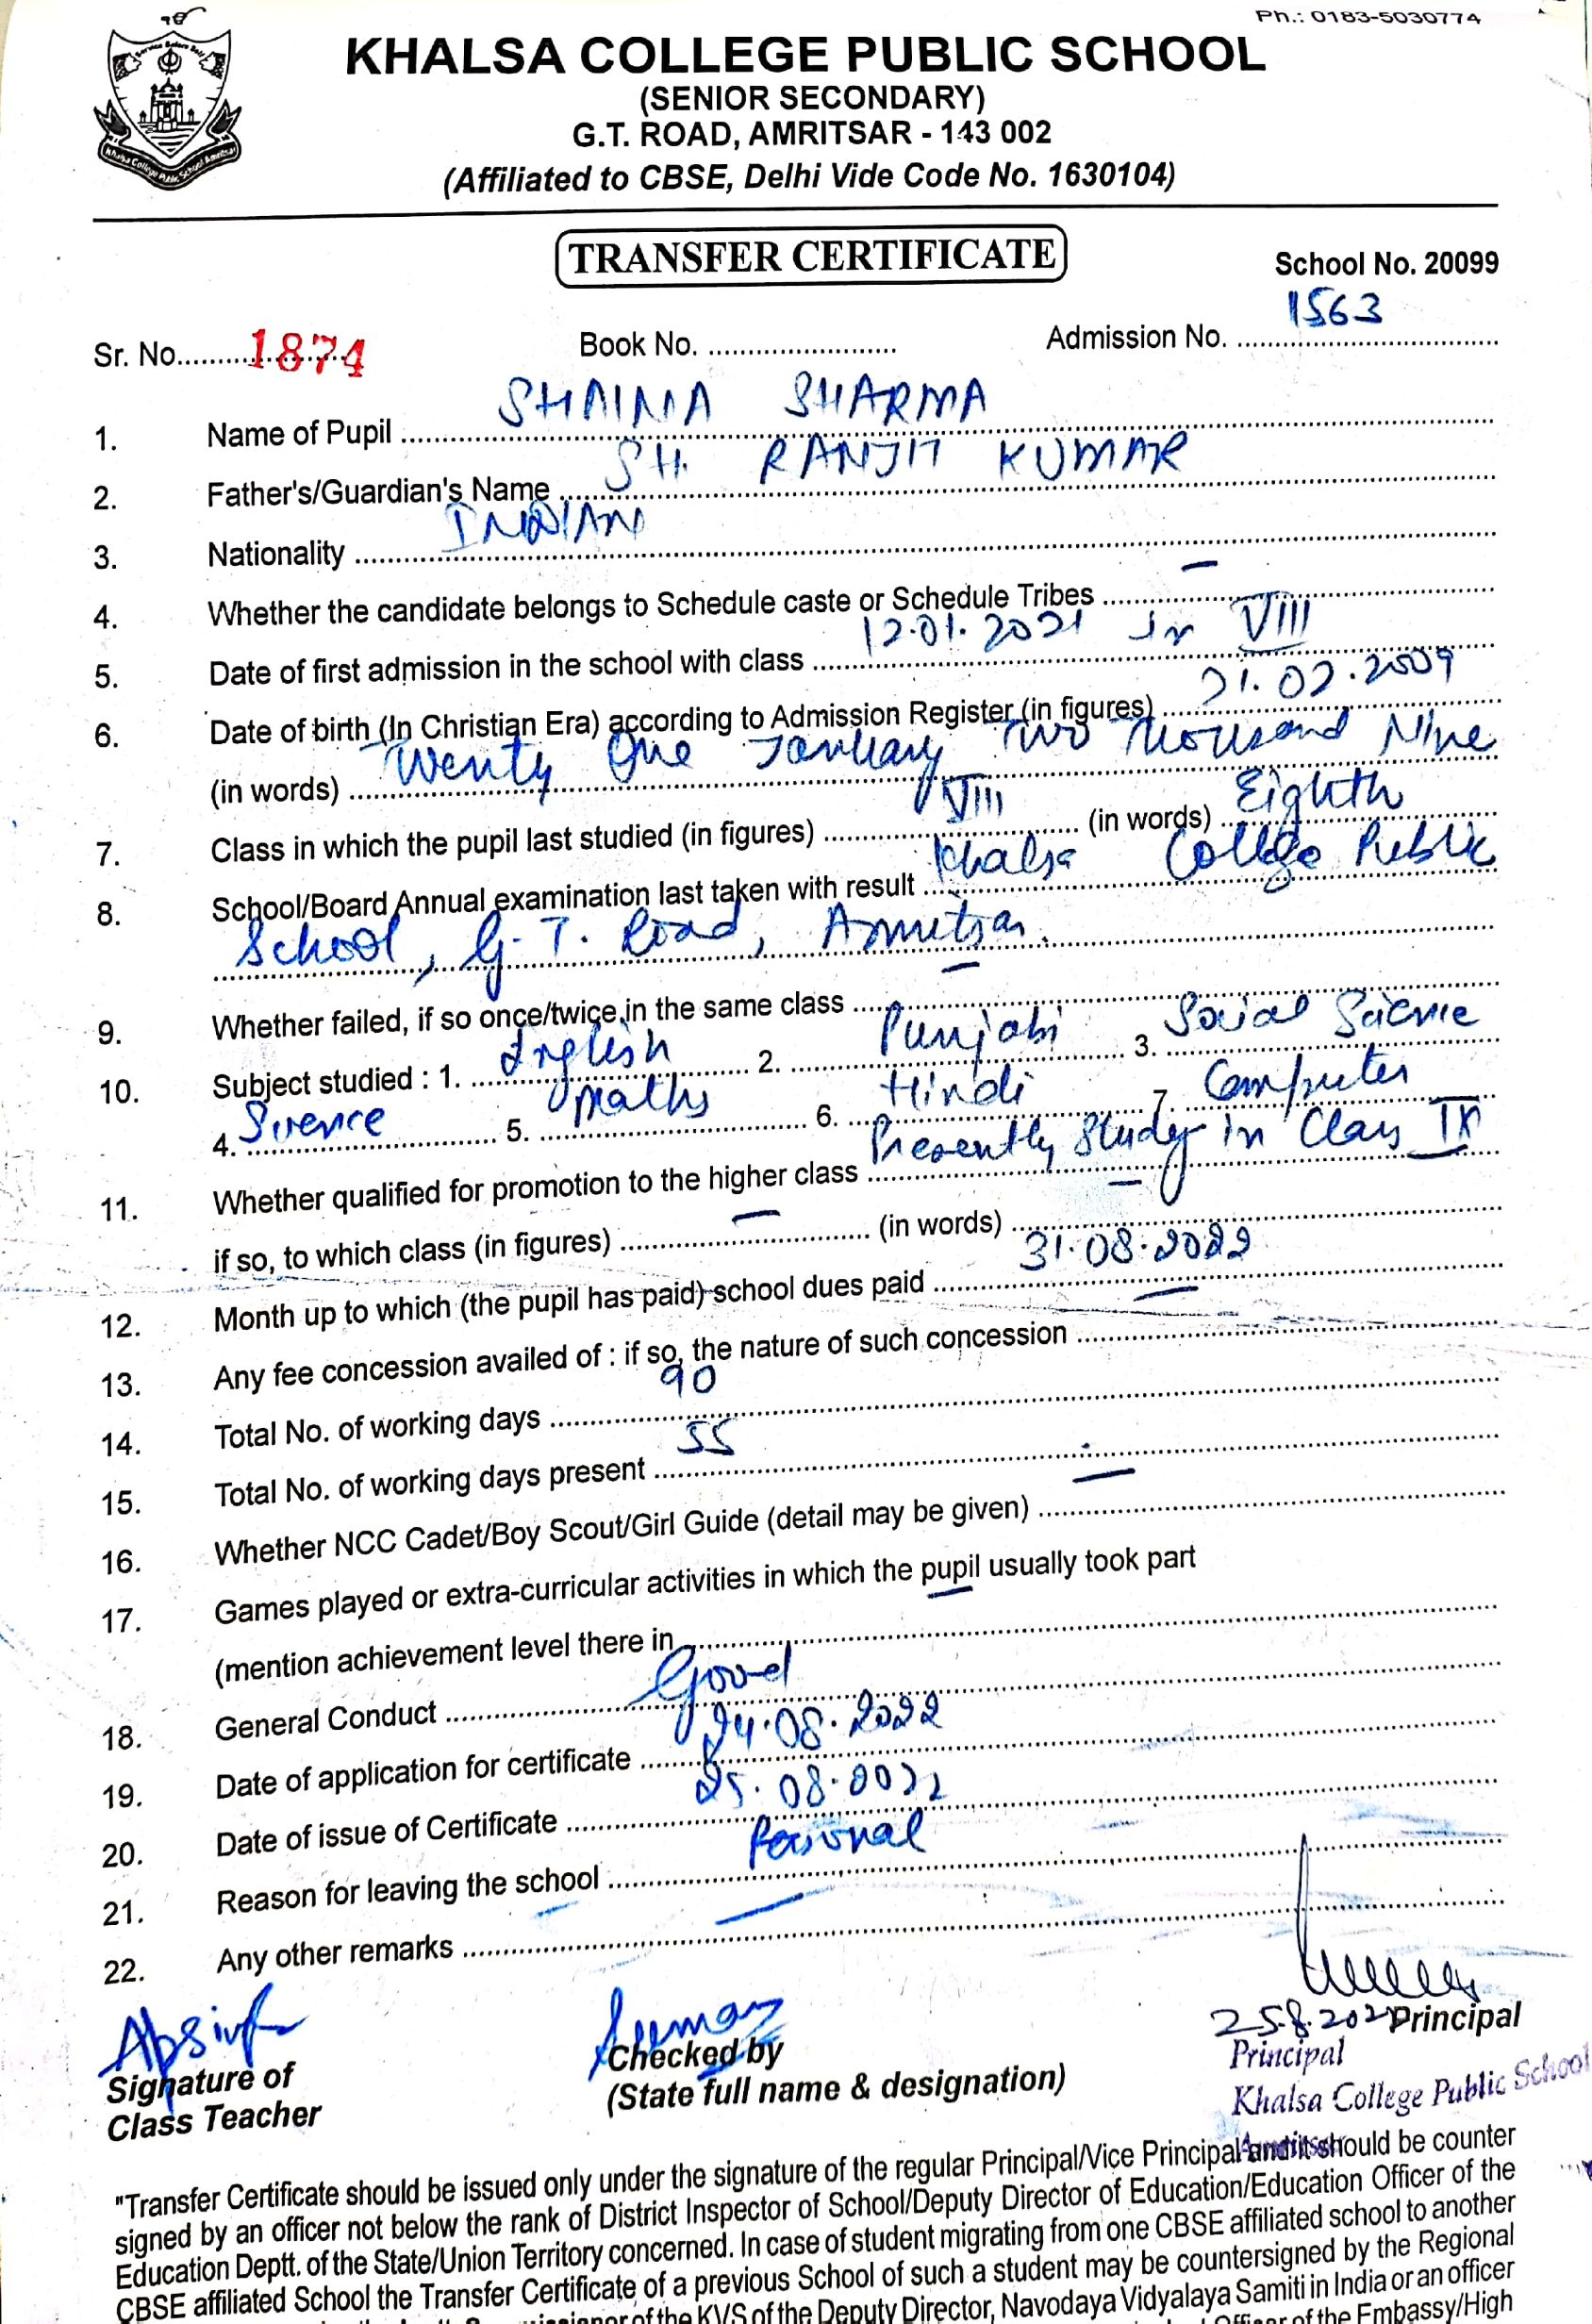 Ph.: 0183-5030774
KHALSA COLLEGE PUBLIC SCHOOL
(SENIOR SECONDARY)
G.T. ROAD, AMRITSAR - 143 002
(Affiliated to CBSE, Delhi Vide Code No. 1630104)
Khalsa College Public School Amritsar
TRANSFER CERTIFICATE
School No. 20099
Sr. No. 1874 Book No. Admission No. 1563
1. Name of Pupil SHAINA SHARMA
2. Father's/Guardian's Name SH. RANJIT KUMAR
3. Nationality INDIAN
4. Whether the candidate belongs to Schedule caste or Schedule Tribes —
5. Date of first admission in the school with class 12.01.2021 in VIII
6. Date of birth (In Christian Era) according to Admission Register (in figures) 21.02.2009
(in words) Twenty One January Two Thousand Nine
7. Class in which the pupil last studied (in figures) VIII (in words) Eighth
8. School/Board Annual examination last taken with result Khalsa College Public
School, G.T. Road, Amritsar.
9. Whether failed, if so once/twice in the same class —
10. Subject studied : 1. English 2. Punjabi 3. Social Science
4. Science 5. Maths 6. Hindi 7. Computer
11. Whether qualified for promotion to the higher class Presently Study in Class IX
if so, to which class (in figures) — (in words) —
12. Month up to which (the pupil has paid) school dues paid 31.08.2022
13. Any fee concession availed of : if so, the nature of such concession —
14. Total No. of working days 90
15. Total No. of working days present 55
16. Whether NCC Cadet/Boy Scout/Girl Guide (detail may be given) —
17. Games played or extra-curricular activities in which the pupil usually took part
(mention achievement level there in —
18. General Conduct Good
19. Date of application for certificate 24.08.2022
20. Date of issue of Certificate 25.08.2022
21. Reason for leaving the school Personal
22. Any other remarks —
25.8.2022 Principal
Signature of
Class Teacher
Checked by
(State full name & designation)
Principal
Khalsa College Public School
Amritsar
"Transfer Certificate should be issued only under the signature of the regular Principal/Vice Principal and it should be counter
signed by an officer not below the rank of District Inspector of School/Deputy Director of Education/Education Officer of the
Education Deptt. of the State/Union Territory concerned. In case of student migrating from one CBSE affiliated school to another
CBSE affiliated School the Transfer Certificate of a previous School of such a student may be countersigned by the Regional
of the KVS of the Deputy Director, Navodaya Vidyalaya Samiti in India or an officer
of the Embassy/High